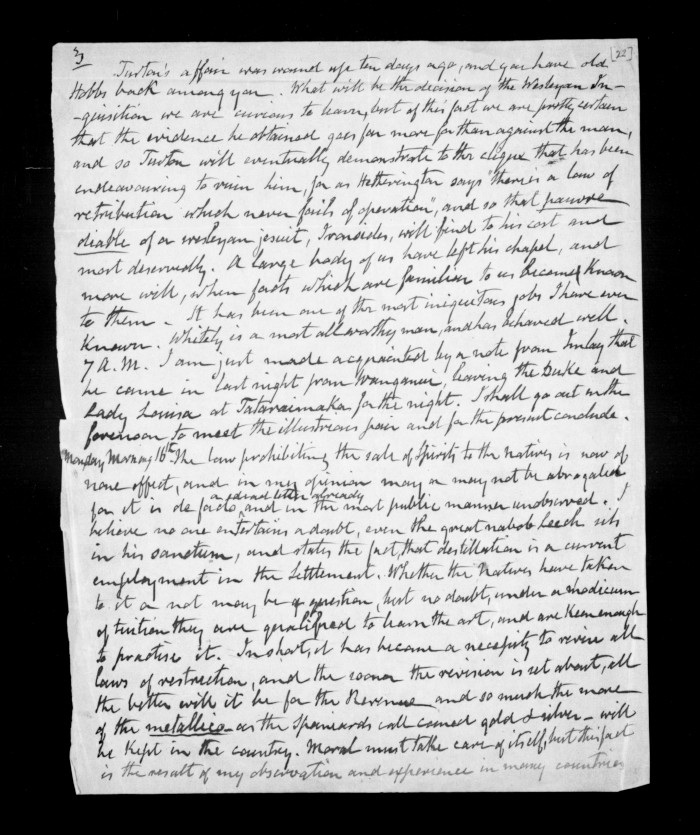 3
[22]
Turton's affair was wound up ten days ago, and you have old
Hobbs back among you. What will be the decision of the Wesleyan In-
-quisition we are curious to learn, but of this fact we are pretty certain
that the evidence he obtained goes far more for than against the man,
and so Turton will eventually demonstrate to the clique that has been
endeavouring to ruin him, for as Hetherington says "there is a law of
retribution which never fails of operation", and so that pauvre
diable of a wesleyan jesuit, Ironsides, will find to his cost and
most deservedly. A large body of us have left his chapel, and
more will, when facts which are familiar to us become known
to them - It has been one of the most iniquitous jobs I have ever
known. Whitely is a most all worthy man, and has behaved well.
7 A.M. I am just made acquainted by a note from Imlay that
he came in last night from Wanganui, leaving the Duke and
Lady Louisa at Tataraimaka for the night. I shall go out in the
forenoon to meet the illustrious pair and for the present conclude.
Monday Morning 16th The law prohibiting the sale of Spirits to the natives is now of
none effect, and in my opinion may or may not be abrogated
for it is de facto a dead letter already and in the most public manner unobserved. I
believe no one entertains a doubt, even the great nabob Leech sits
in his sanctum, and states the fact, that destillation is a current
employment in the Settlement. Whether the Natives have taken
to it or not may be a question, but no doubt, under a modicum
of tuition they are qualified to learn the art, and are keen enough
to practise it. In short, it has become a necessity to revise all
laws of restriction, and the sooner the revision is set about, all
the better will it be for the Revenue and so much the more
of the metallico - as the Spaniards call coined gold & silver - will
be kept in the country. Moral must take care of itself, but this fact
is the result of my observation and experience in many countries